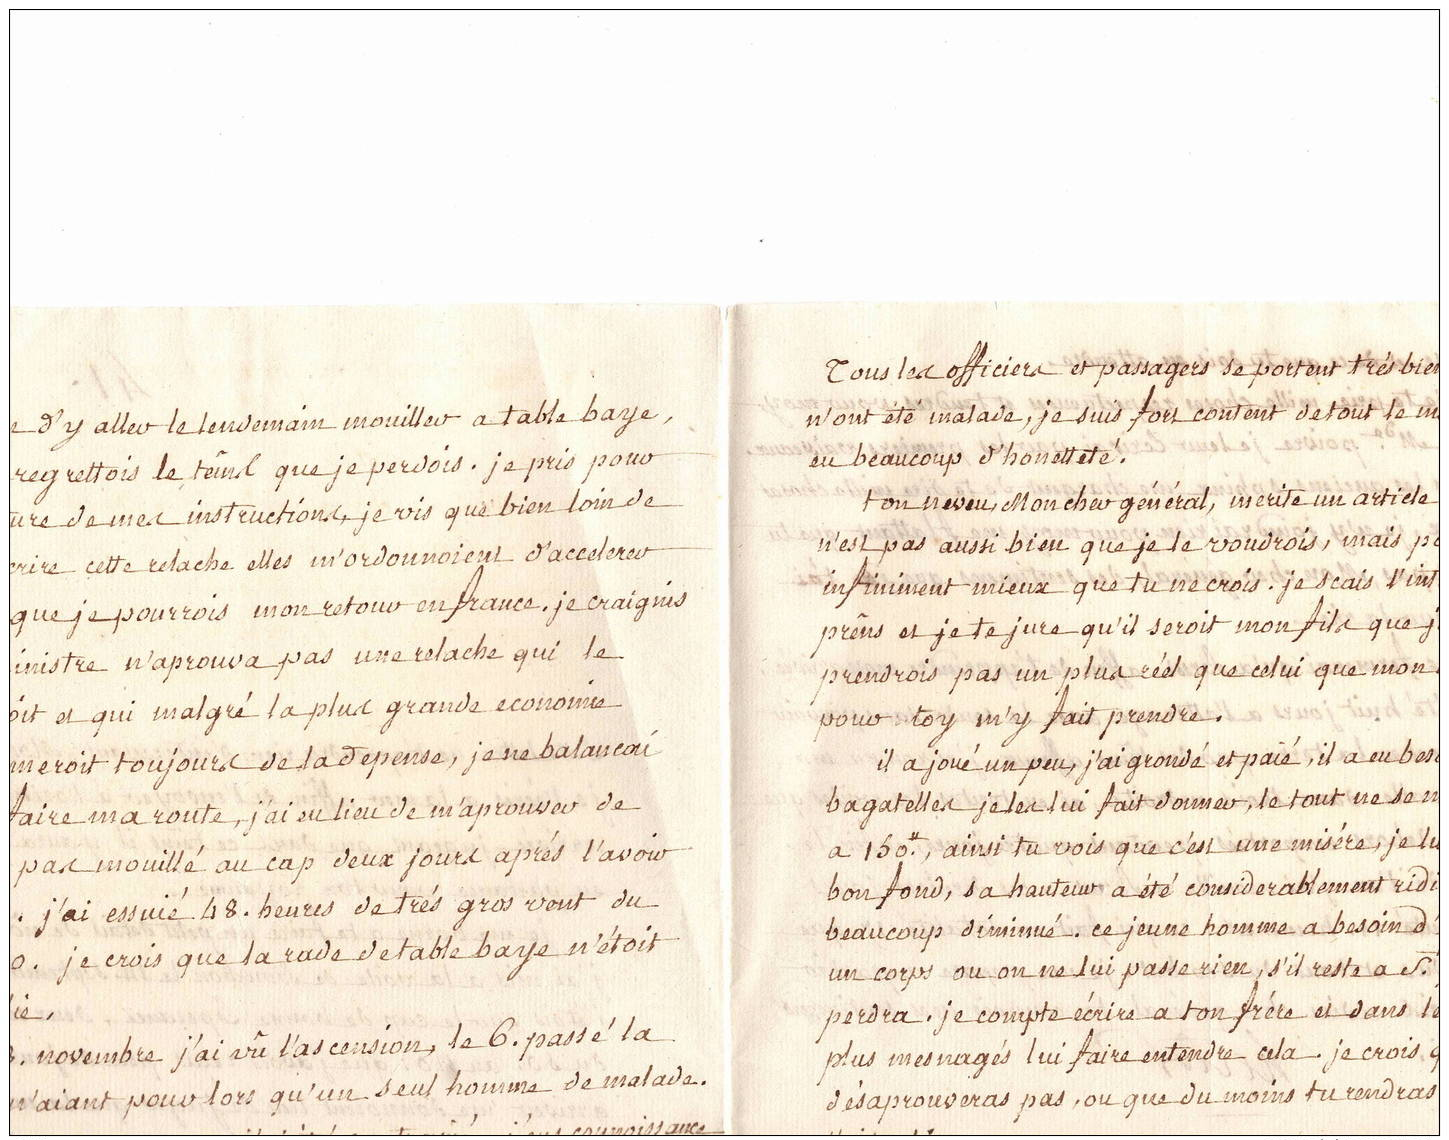 e d'y aller le lendemain mouiller a table baye,
regrettois le têms que je perdois. je pris pour
ure de mes instructions, je vis que bien loin de
crire cette relache elles m'ordonnoient d'accelerer
que je pourrois mon retour en france. je craignis
inistre n'aprouva pas une relache qui le
oit et qui malgré la plus grande economie
meroit toujours de la depense, je ne balancai
faire ma route, j'ai eu lieu de m'aprouver de
pas mouillé au cap deux jours aprés l'avoir
. j'ai essuié 48. heures de trés gros vent du
o. je crois que la rade de table baye n'étoit
ie.
3. novembre j'ai vû l'ascension, le 6. passé la
n'aiant pour lors qu'un seul homme de malade.
connoissance
Tous les officiers et passagers se portent trés bien
n'ont été malade, je suis fort content de tout le m
eu beaucoup d'honetteté.
ton neveu, Mon cher général, merite un article
n'est pas aussi bien que je le voudrois, mais po
infiniment mieux que tu ne crois. je scais l'int
prêns et je te jure qu'il seroit mon fils que j
prendrois pas un plus réel que celui que mon
pour toy m'y fait prendre.
il a joué un peu, j'ai grondé et païé, il a eu beso
bagatelles je les lui fait donner, le tout ne se m
a 150.tt, ainsi tu vois que c'est une misére, je lu
bon fond, sa hauteur a été considerablement ridi
beaucoup diminué. ce jeune homme a besoin d'
un corps ou on ne lui passe rien, s'il reste a S.
perdra. je compte écrire a ton frére et dans le
plus mesnagés lui faire entendre cela. je crois q
désaprouveras pas, ou que du moins tu rendras